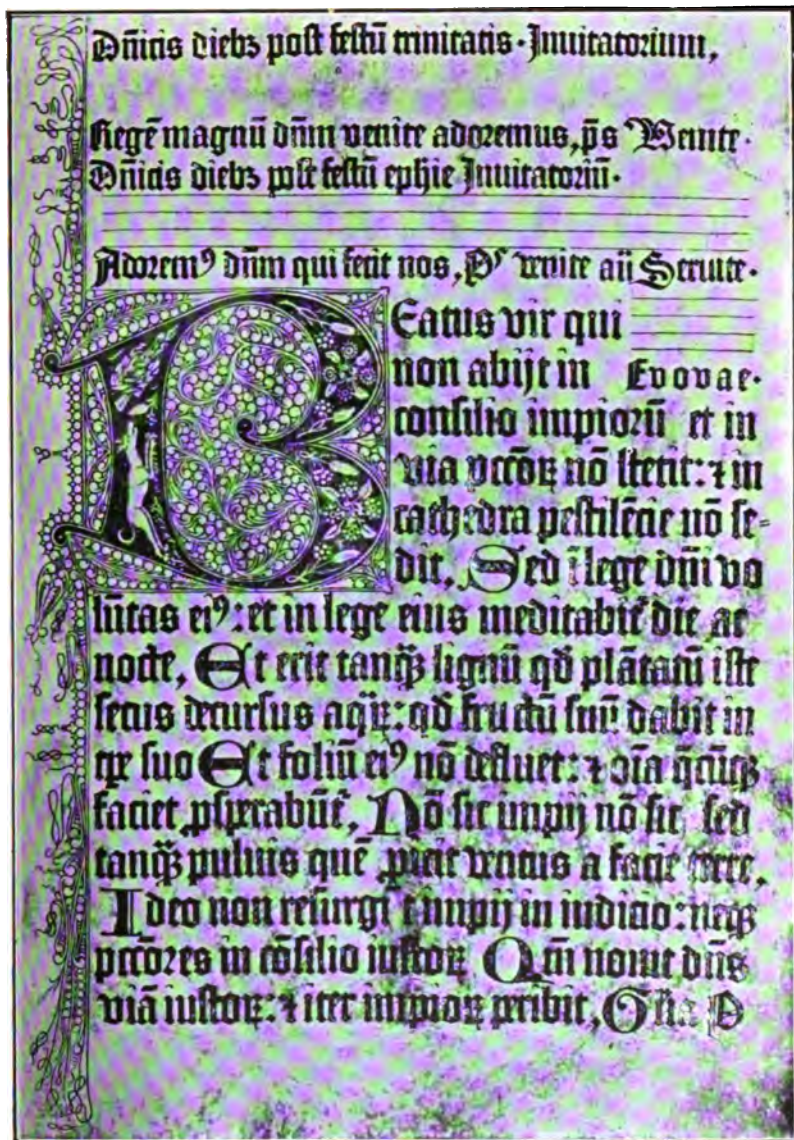 Dñicis diebȝ post festū trinitatis · Inuitatorium,
Regē magnū dñm venite adoremus, p̄s Venite ·
Dñicis diebȝ post festū ephie Inuitatoriū ·
Adoremꝰ dñm qui fecit nos, Pˢ venite añ Seruite ·
Beatus vir qui
non abijt in Evovae ·
consilio impiorū et in
via pccōꝝ nō stetit: ⁊ in
cathedra pestilēcie nō se=
dit, Sed ī lege dñi vo
lūtas eiꝰ: et in lege eius meditabit̄ die ac
nocte, Et erit tanqȝ lignū qd̄ plātatū iste
secus decursus aqꝝ: qd̄ fructū suū dabit in
tꝑe suo Et foliū eiꝰ nō defluet: ⁊ oīa q̄cūqȝ
faciet ꝓsperabūt̄, Nō sic impij nō sic sed
tanqȝ puluis quē ꝓicit ventus a facie terre,
Ideo non resurgūt impij in iudicio: neqȝ
pctōres in cōsilio iustoꝝ Qm̄ nouit dñs
viā iustoꝝ: ⁊ iter impioꝝ peribit, Glīa P